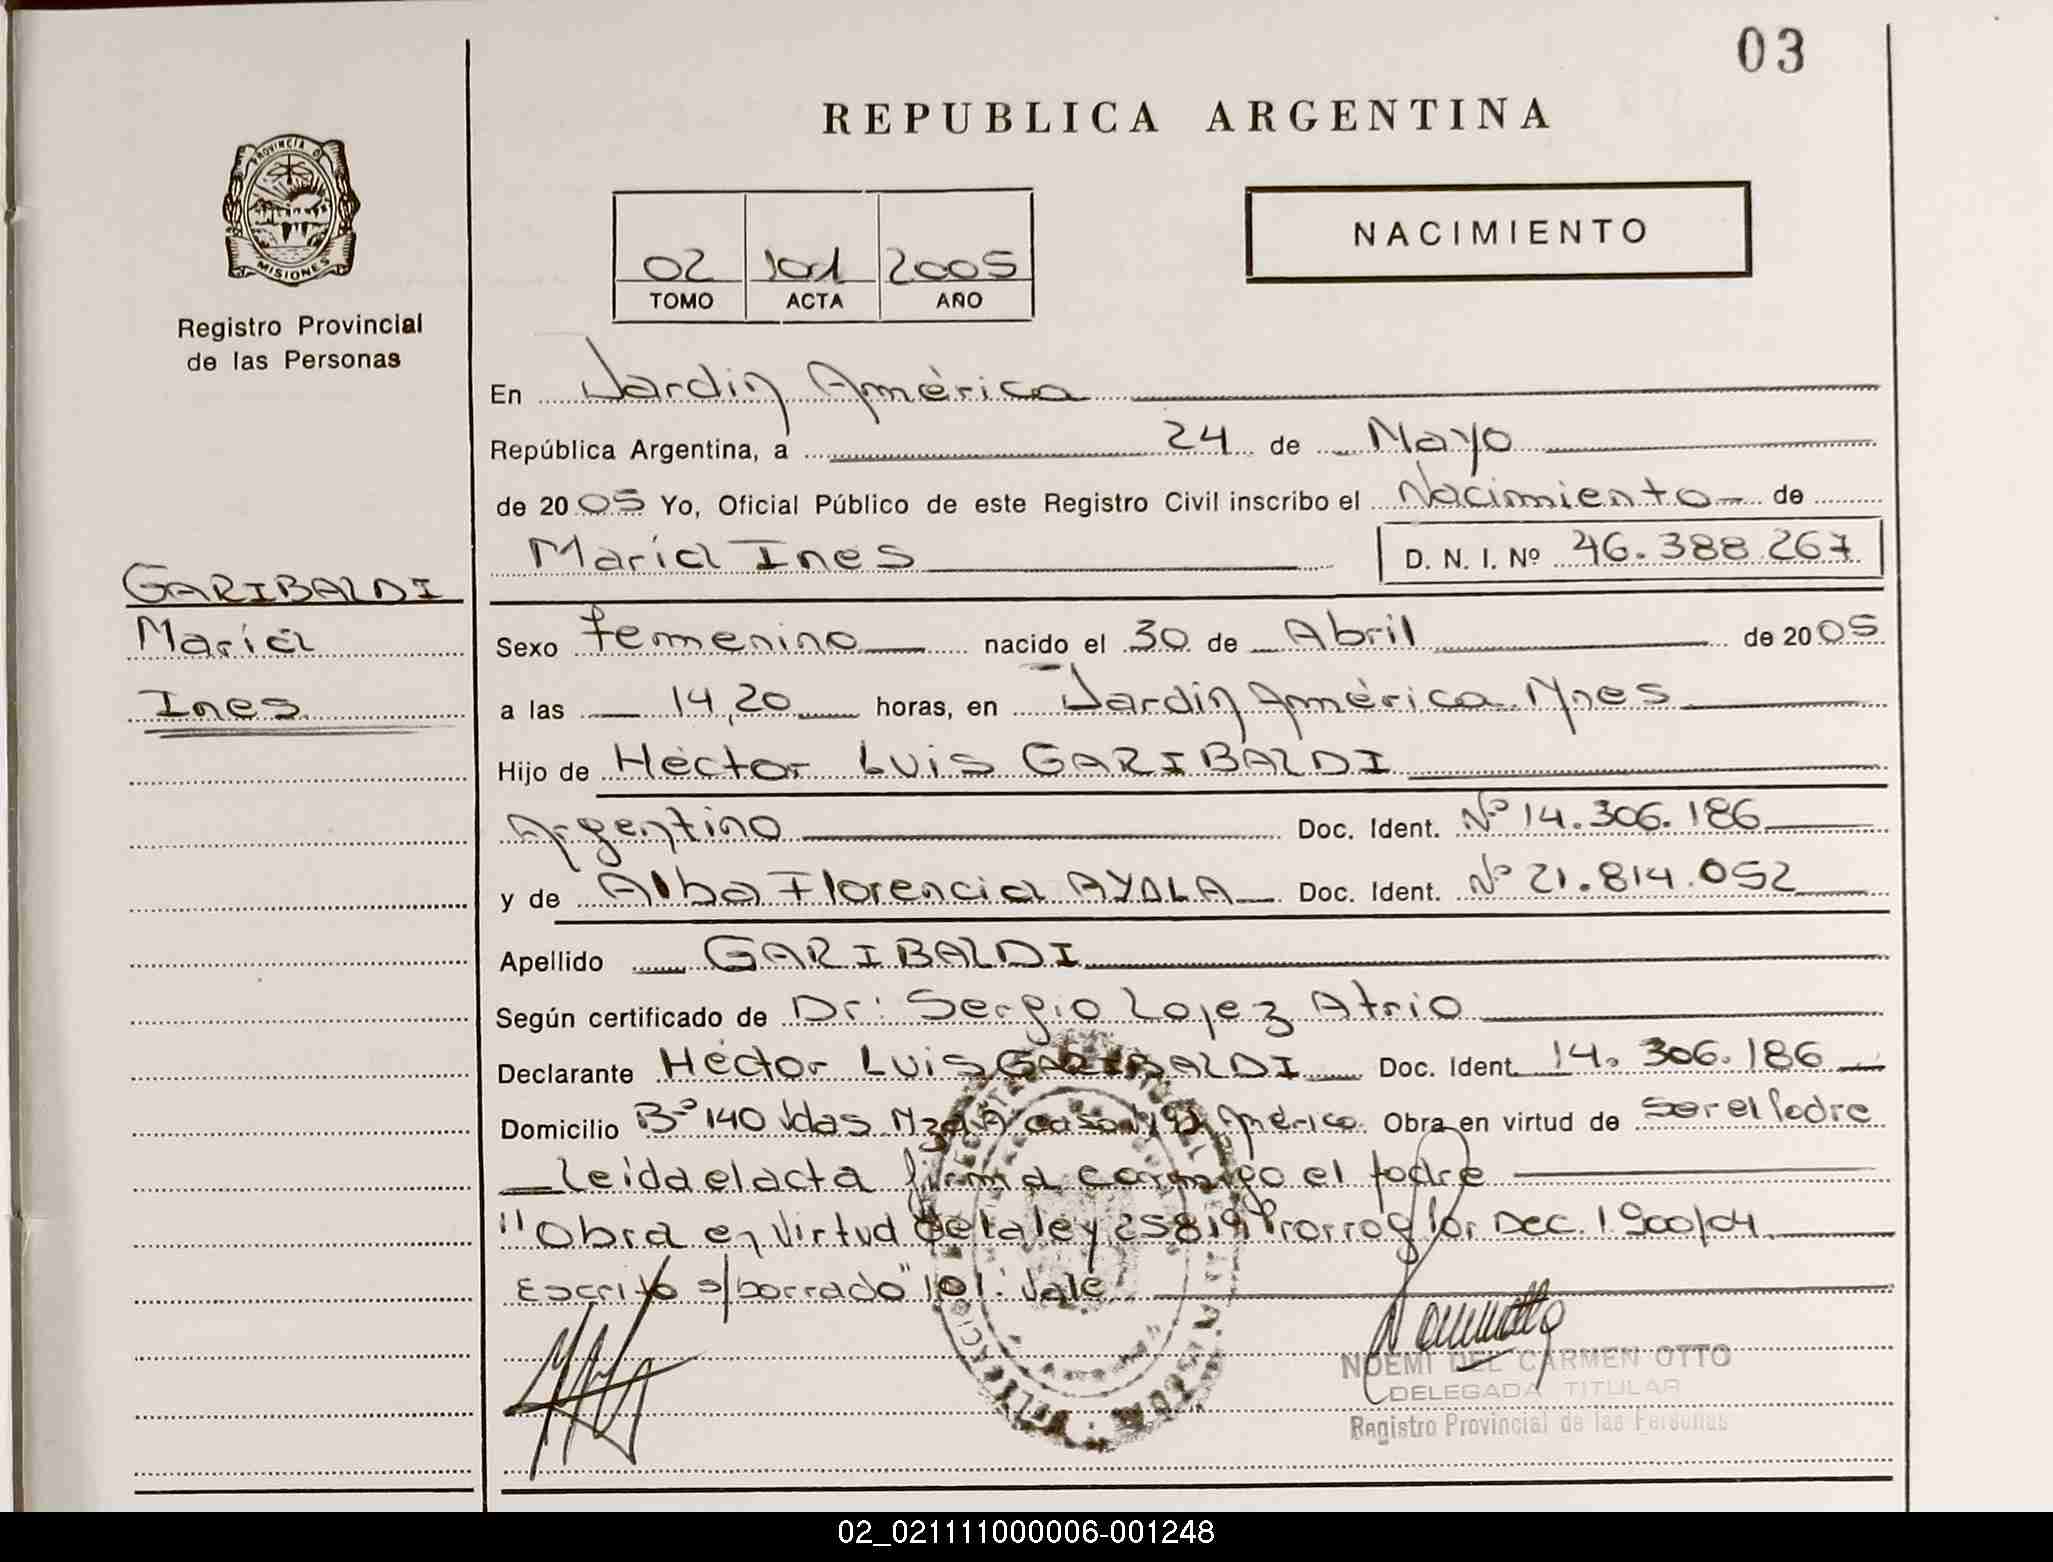 03
REPUBLICA ARGENTINA
PROVINCIA D
MISIONES
Registro Provincial
de las Personas
NACIMIENTO
02 101 2005
TOMO ACTA AÑO
En Jardín América
República Argentina, a 24 de Mayo
de 2005 Yo, Oficial Público de este Registro Civil inscribo el Nacimiento de
María Ines D. N. I. Nº 46.388.267
GARIBALDI
María
Ines
Sexo Femenino nacido el 30 de Abril de 2005
a las 14,20 horas, en Jardín América. Mnes
Hijo de Héctor Luis GARIBALDI
Argentino Doc. Ident. Nº 14.306.186
y de Alba Florencia AYALA Doc. Ident. Nº 21.814.052
Apellido GARIBALDI
Según certificado de Dr: Sergio Lopez Atrio
Declarante Héctor Luis GARIBALDI Doc. Ident. 14.306.186
Domicilio Bº 140 Vdas Mza A casa América. Obra en virtud de ser el Padre
Leida el acta firma conmigo el padre
"Obra en virtud de la ley 25819 Prorrog por Dec. 1900/04
Escrito s/borrado "101": Vale
NOEMI DEL CARMEN OTTO
DELEGADA TITULAR
Registro Provincial de las Personas
02_021111000006-001248